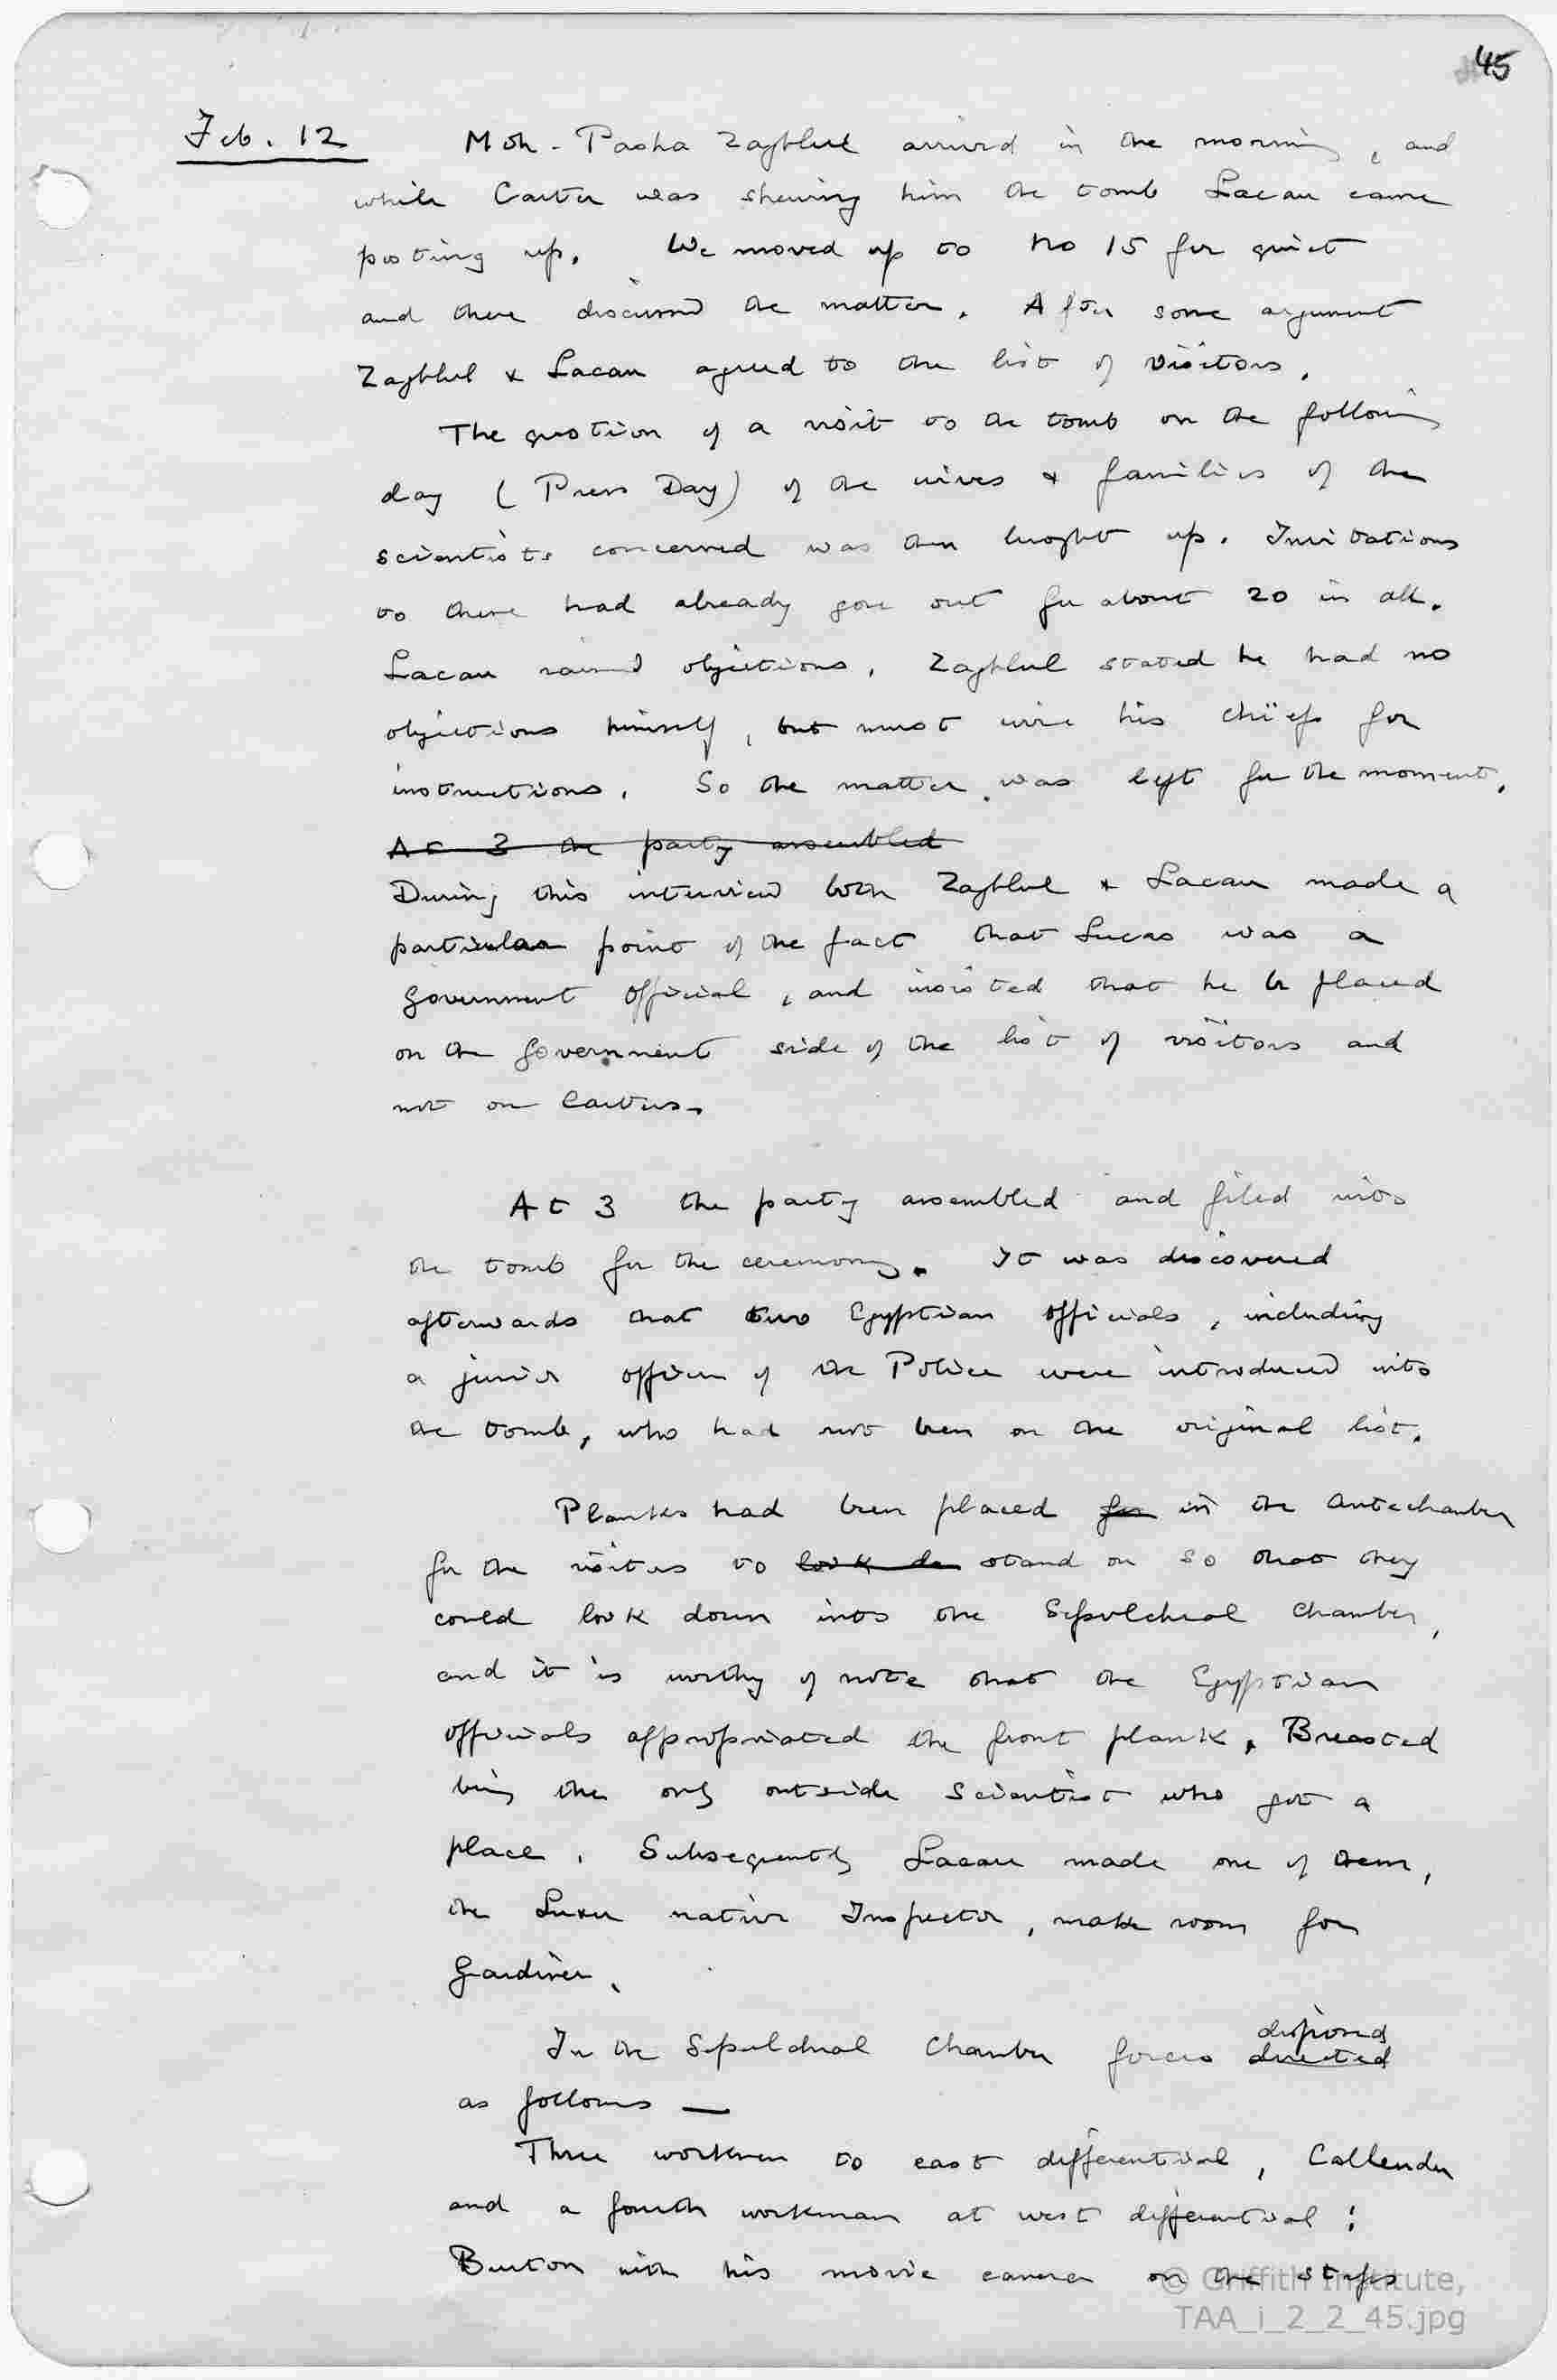 45
Feb. 12 Moh. Pasha Zaghlul arrived in the morning, and
while Carter was shewing him the tomb Lacau came
posting up. We moved up to No 15 for quiet
and there discussed the matter. After some argument
Zaghlul & Lacau agreed to the list of visitors.
The question of a visit to the tomb on the following
day (Press Day) of the wives & families of the
scientists concerned was then brought up. Invitations
to these had already gone out for about 20 in all.
Lacau raised objections. Zaghlul stated he had no
objections himself, but must wire his chiefs for
instructions. So the matter was left for the moment.
At 3 the party assembled
During this interview both Zaghlul & Lacau made a
particular point of the fact that Lucas was a
Government official, and insisted that he be placed
on the Government side of the list of visitors and
not on Carters.
At 3 the party assembled and filed into
the tomb for the ceremony. It was discovered
afterwards that two Egyptian officials, including
a junior officer of the Police were introduced into
the tomb, who had not been on the original list.
Planks had been placed for in the Antechamber
for the visitors to look do stand on so that they
could look down into the Sepulchral Chamber,
and it is worthy of note that the Egyptian
officials appropriated the front plank, Breasted
being the only outside scientist who got a
place. Subsequently Lacau made one of them,
the Luxor native Inspector, make room for
Gardiner.
In the Sepulchral Chamber forces directed disposed
as follows —
Three workmen to east differential, Callender
and a fourth workman at west differential:
Burton with his movie camera on the steps
© Griffith Institute,
TAA_i_2_2_45.jpg